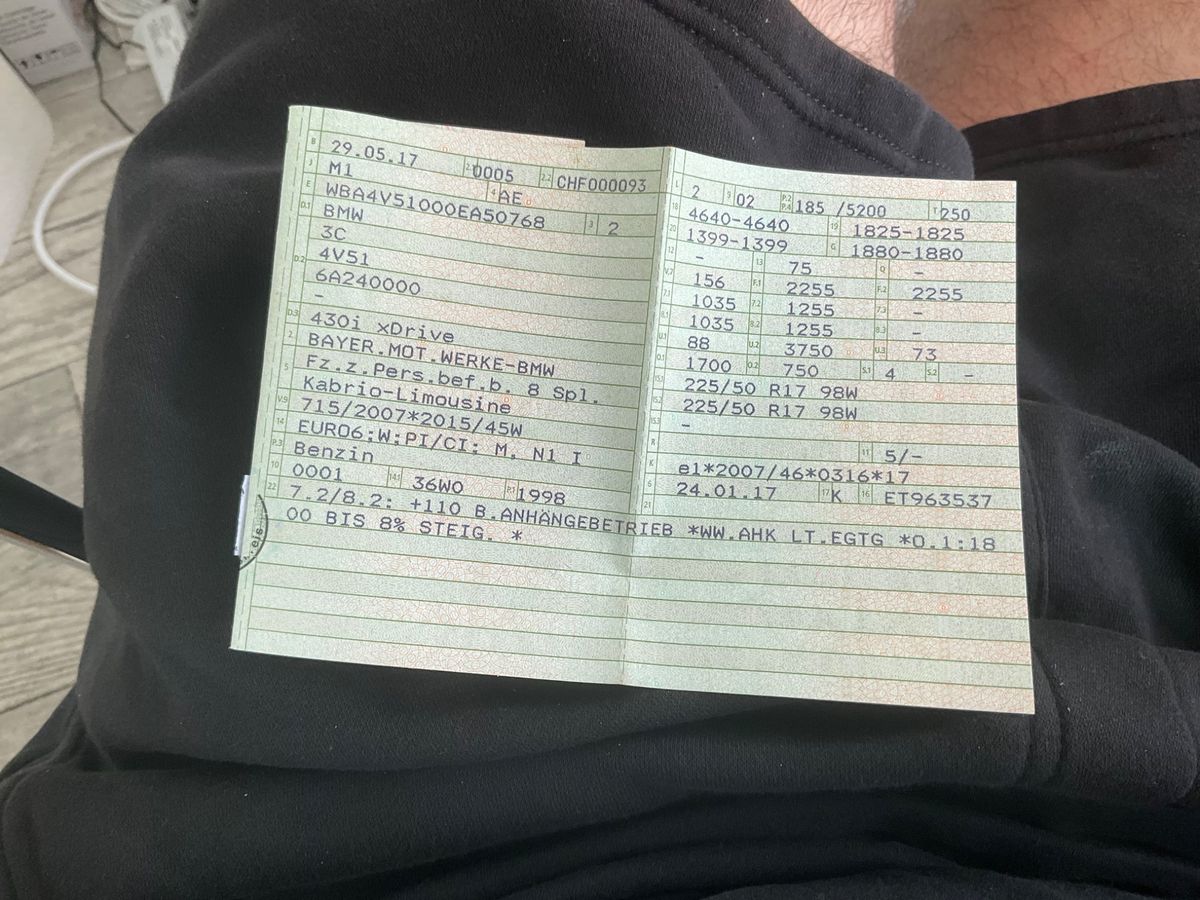 B 29.05.17 2.1 0005 2.2 CHF000093
J M1 4 AE
E WBA4V51000EA50768 3 2
D.1 BMW
3C
D.2 4V51
6A240000
-
D.3 430i xDrive
2 BAYER.MOT.WERKE-BMW
5 Fz.z.Pers.bef.b. 8 Spl.
Kabrio-Limousine
V.9 715/2007*2015/45W
14 EURO6;W;PI/CI; M, N1 I
P.3 Benzin
10 0001 14.1 36W0 P.1 1998
L 2 9 02 P.2 P.4 185 /5200 T 250
18 4640-4640 19 1825-1825
20 1399-1399 G 1880-1880
12 - 13 75 Q -
V.7 156 F.1 2255 F.2 2255
7.1 1035 7.2 1255 7.3 -
8.1 1035 8.2 1255 8.3 -
U.1 88 U.2 3750 U.3 73
O.1 1700 O.2 750 S.1 4 S.2 -
15.1 225/50 R17 98W
15.2 225/50 R17 98W
15.3 -
R 11 5/-
K e1*2007/46*0316*17
6 24.01.17 17 K 16 ET963537
21
22 7.2/8.2: +110 B.ANHÄNGEBETRIEB *WW.AHK LT.EGTG *O.1:18
00 BIS 8% STEIG. *
eis